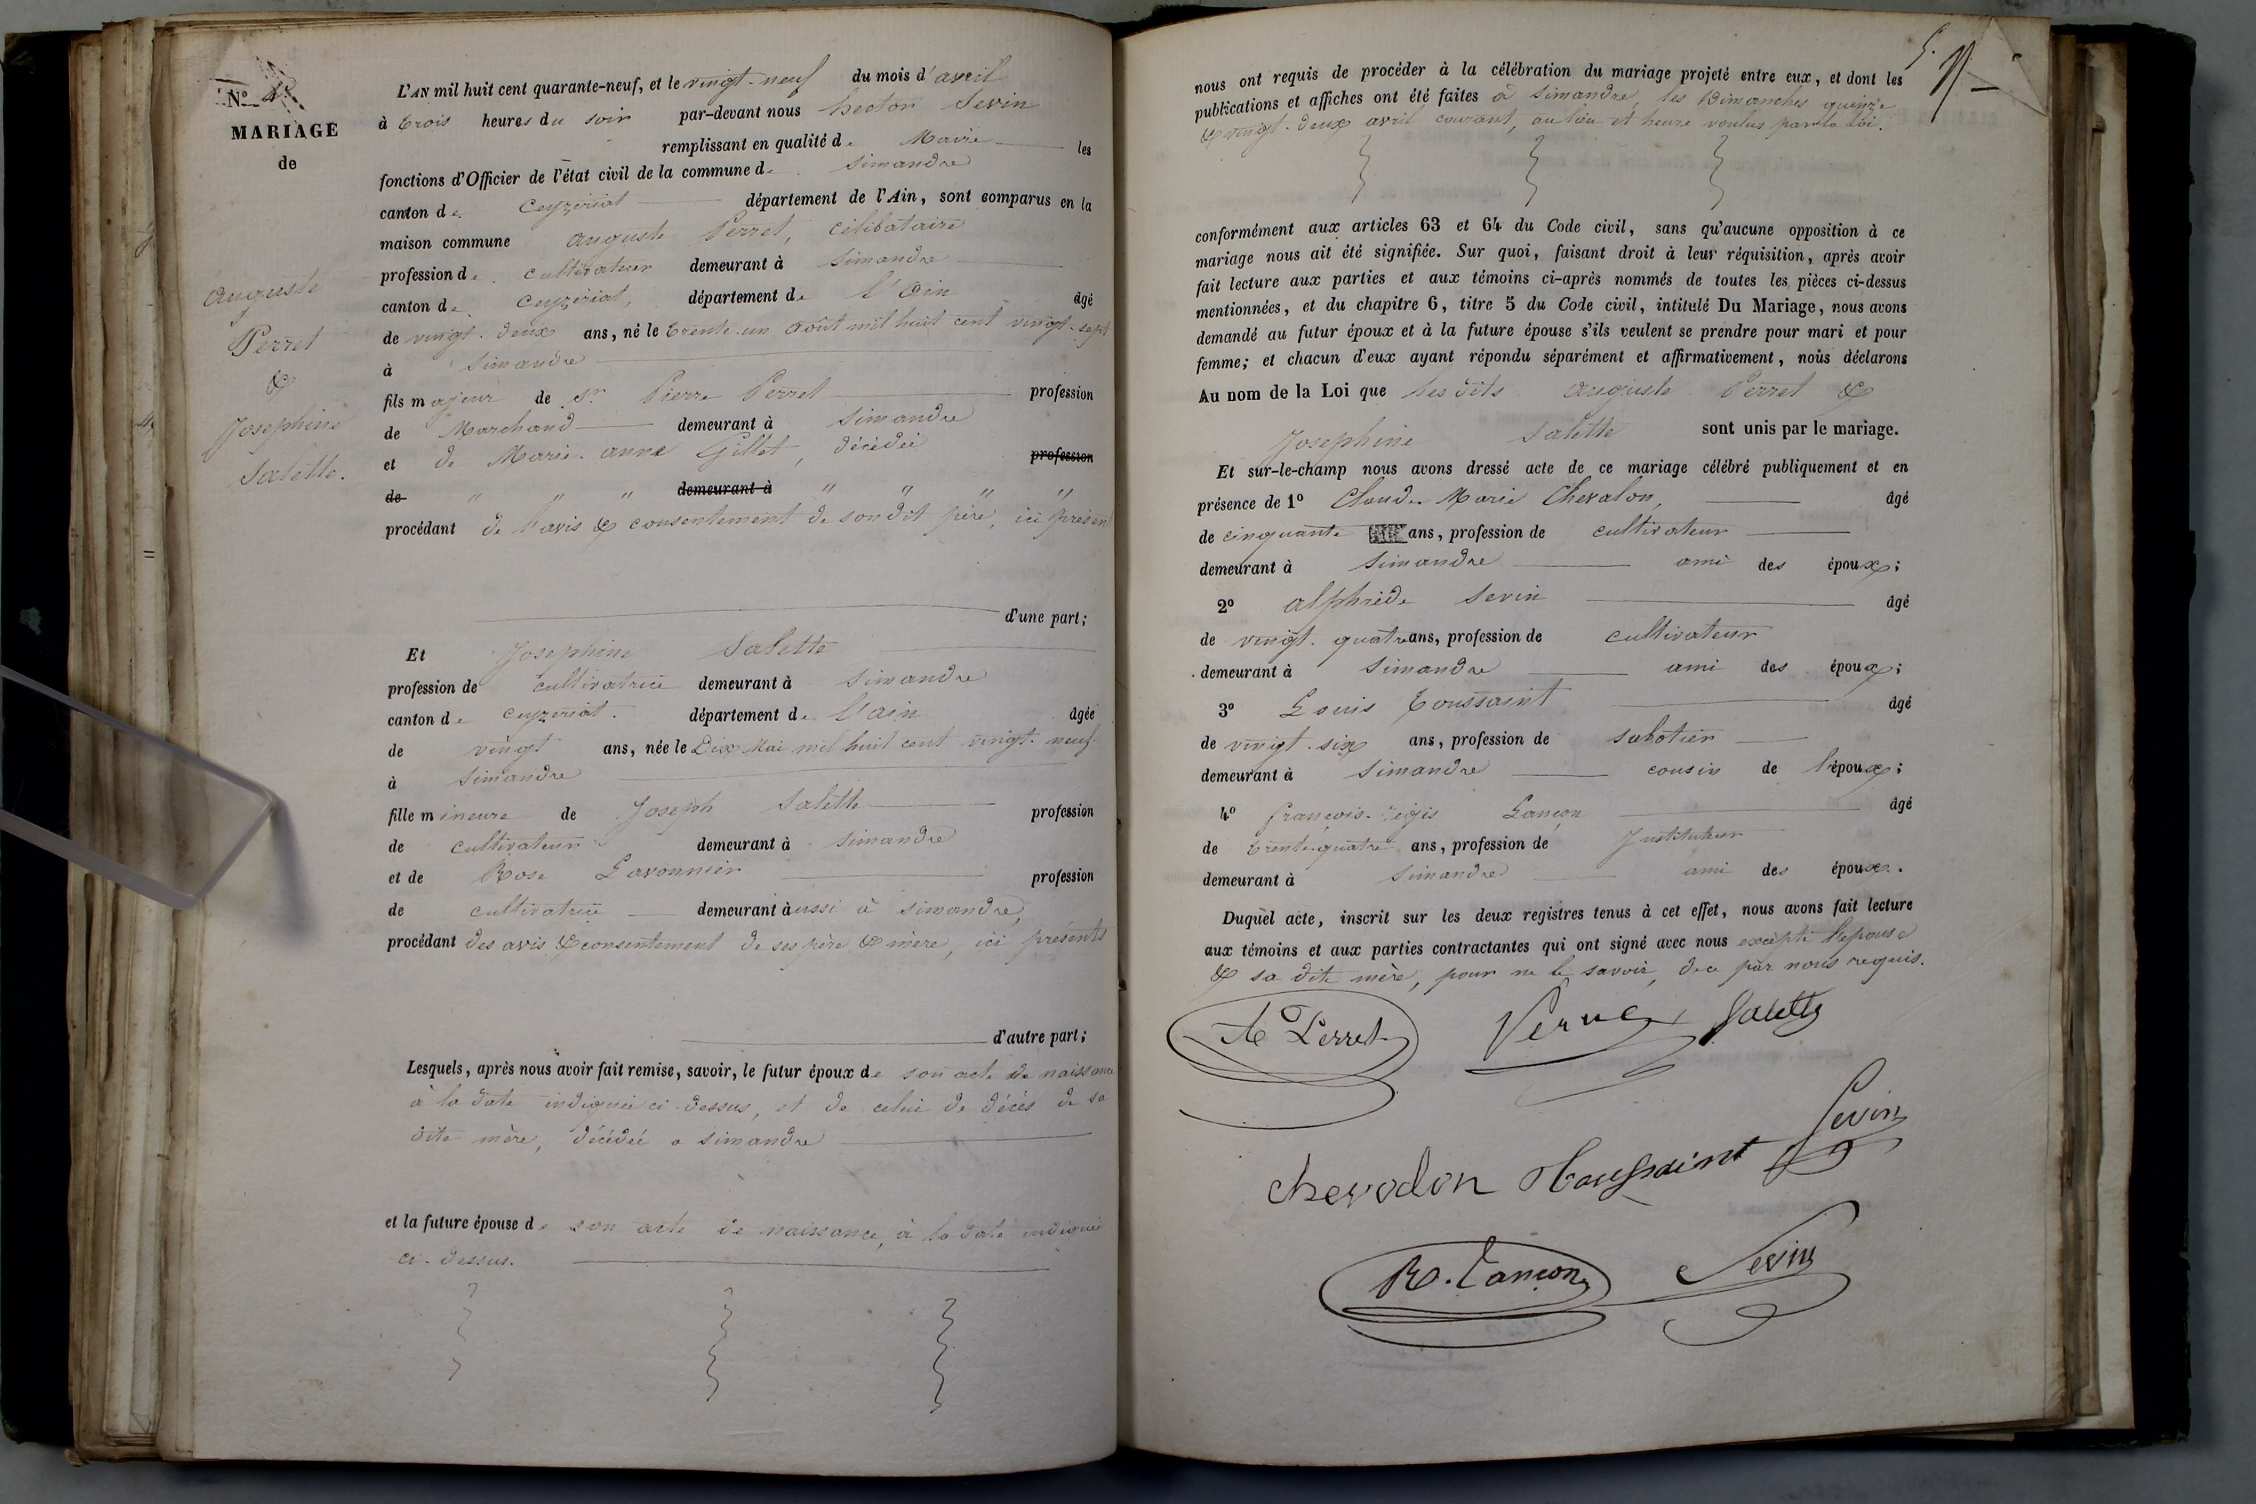 N.º 4.
MARIAGE
de
Auguste
Perret
&
Josephine
Salette.
L'AN mil huit cent quarante-neuf, et le vingt-neuf du mois d'avril
à trois heures du soir par-devant nous hector Sevin
remplissant en qualité de Maire les
fonctions d'Officier de l'état civil de la commune de Simandre
canton de Ceyzeriat département de l'Ain, sont comparus en la
maison commune Auguste Perret, célibataire
profession de cultivateur demeurant à Simandre
canton de Ceyzériat, département de l'Ain âgé
de vingt-deux ans, né le trente-un Août mil huit cent vingt-sept
à Simandre
fils majeur de Sr Pierre Perret profession
de Marchand demeurant à Simandre
et de Marie-anne Gillet, décédée profession
de " " " demeurant à " " " "
procédant de l'avis & consentement de son dit père, ici présent
d'une part;
Et Josephine Salette
profession de cultivatrice demeurant à Simandre
canton de Ceyzeriat. département de l'ain âgée
de vingt ans, née le Dix Mai mil huit cent vingt-neuf
à Simandre
fille mineure de Joseph Salette profession
de cultivateur demeurant à Simandre
et de Rose Lavonnier profession
de cultivatrice demeurant àussi à Simandre,
procédant des avis & consentement de ses père & mère, ici présents
d'autre part;
Lesquels, après nous avoir fait remise, savoir, le futur époux de son acte de naissance
à la date indiquée ci-dessus, et de celui de décès de sa
dite mère, décédée à Simandre
et la future épouse de son acte de naissance, à la date indiquée
ci-dessus.
5.
nous ont requis de procéder à la célébration du mariage projeté entre eux, et dont les
publications et affiches ont été faites à Simandre, les Dimanches quinze
& vingt-deux avril courant, au lieu et heure voulus par la loi.
conformément aux articles 63 et 64 du Code civil, sans qu'aucune opposition à ce
mariage nous ait été signifiée. Sur quoi, faisant droit à leur réquisition, après avoir
fait lecture aux parties et aux témoins ci-après nommés de toutes les pièces ci-dessus
mentionnées, et du chapitre 6, titre 5 du Code civil, intitulé Du Mariage, nous avons
demandé au futur époux et à la future épouse s'ils veulent se prendre pour mari et pour
femme; et chacun d'eux ayant répondu séparément et affirmativement, nous déclarons
Au nom de la Loi que les dits Auguste Perret &
Josephine Salette sont unis par le mariage.
Et sur-le-champ nous avons dressé acte de ce mariage célébré publiquement et en
présence de 1º Claude-Marie Chevalon, âgé
de cinquante ans, profession de cultivateur
demeurant à Simandre ami des époux;
2º Alphrède Sevin âgé
de vingt-quatre ans, profession de cultivateur
demeurant à Simandre ami des époux;
3º Louis Toussaint âgé
de vingt-six ans, profession de sabotier
demeurant à Simandre cousin de l'époux;
4º françois-Régis Lançon âgé
de trente-quatre ans, profession de Instituteur
demeurant à Simandre ami des époux.
Duquel acte, inscrit sur les deux registres tenus à cet effet, nous avons fait lecture
aux témoins et aux parties contractantes qui ont signé avec nous excèpté l'épouse
& sa dite mère, pour ne le savoir, de ce par nous requis.
A Perret Salette
Sevin
chevodon Toussaint
R. Lançon Sevin